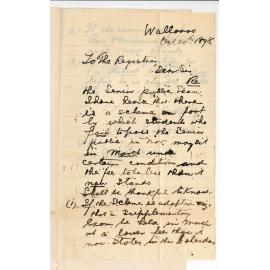 Wallaroo
Oct 20th 1898
To The Registrar
Dear Sir
Re
the Senior public Exam
I have heard that there
is a scheme on foot
by which students who
fail to pass the Senior
public in Nov. may sit
in March under
certain conditions and
the fee to be less than it
now stands
Shall be thankful to know
(1). If the scheme is adopted
that a supplementary
Exam be held in March
at a lower fee than it
now states in the Calendar